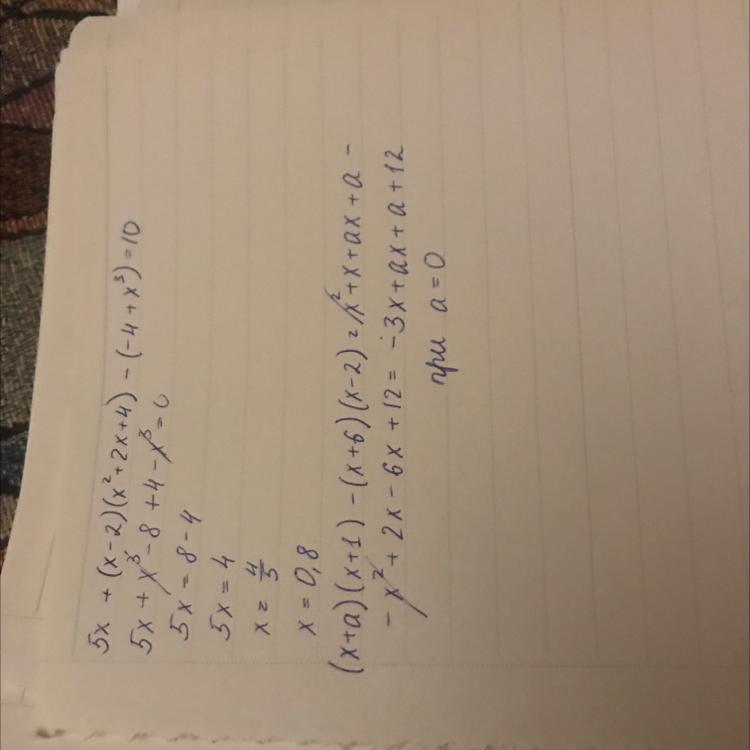 5x + (x-2)(x²+2x+4) - (-4+x³)=10
5x + x³ - 8 + 4 - x³ = 0
5x = 8 - 4
5x = 4
x = 4/5
x = 0,8
(x+a)(x+1) - (x+6)(x-2) = x²+x+ax+a -
- x² + 2x - 6x + 12 = -3x + ax + a + 12
при a = 0